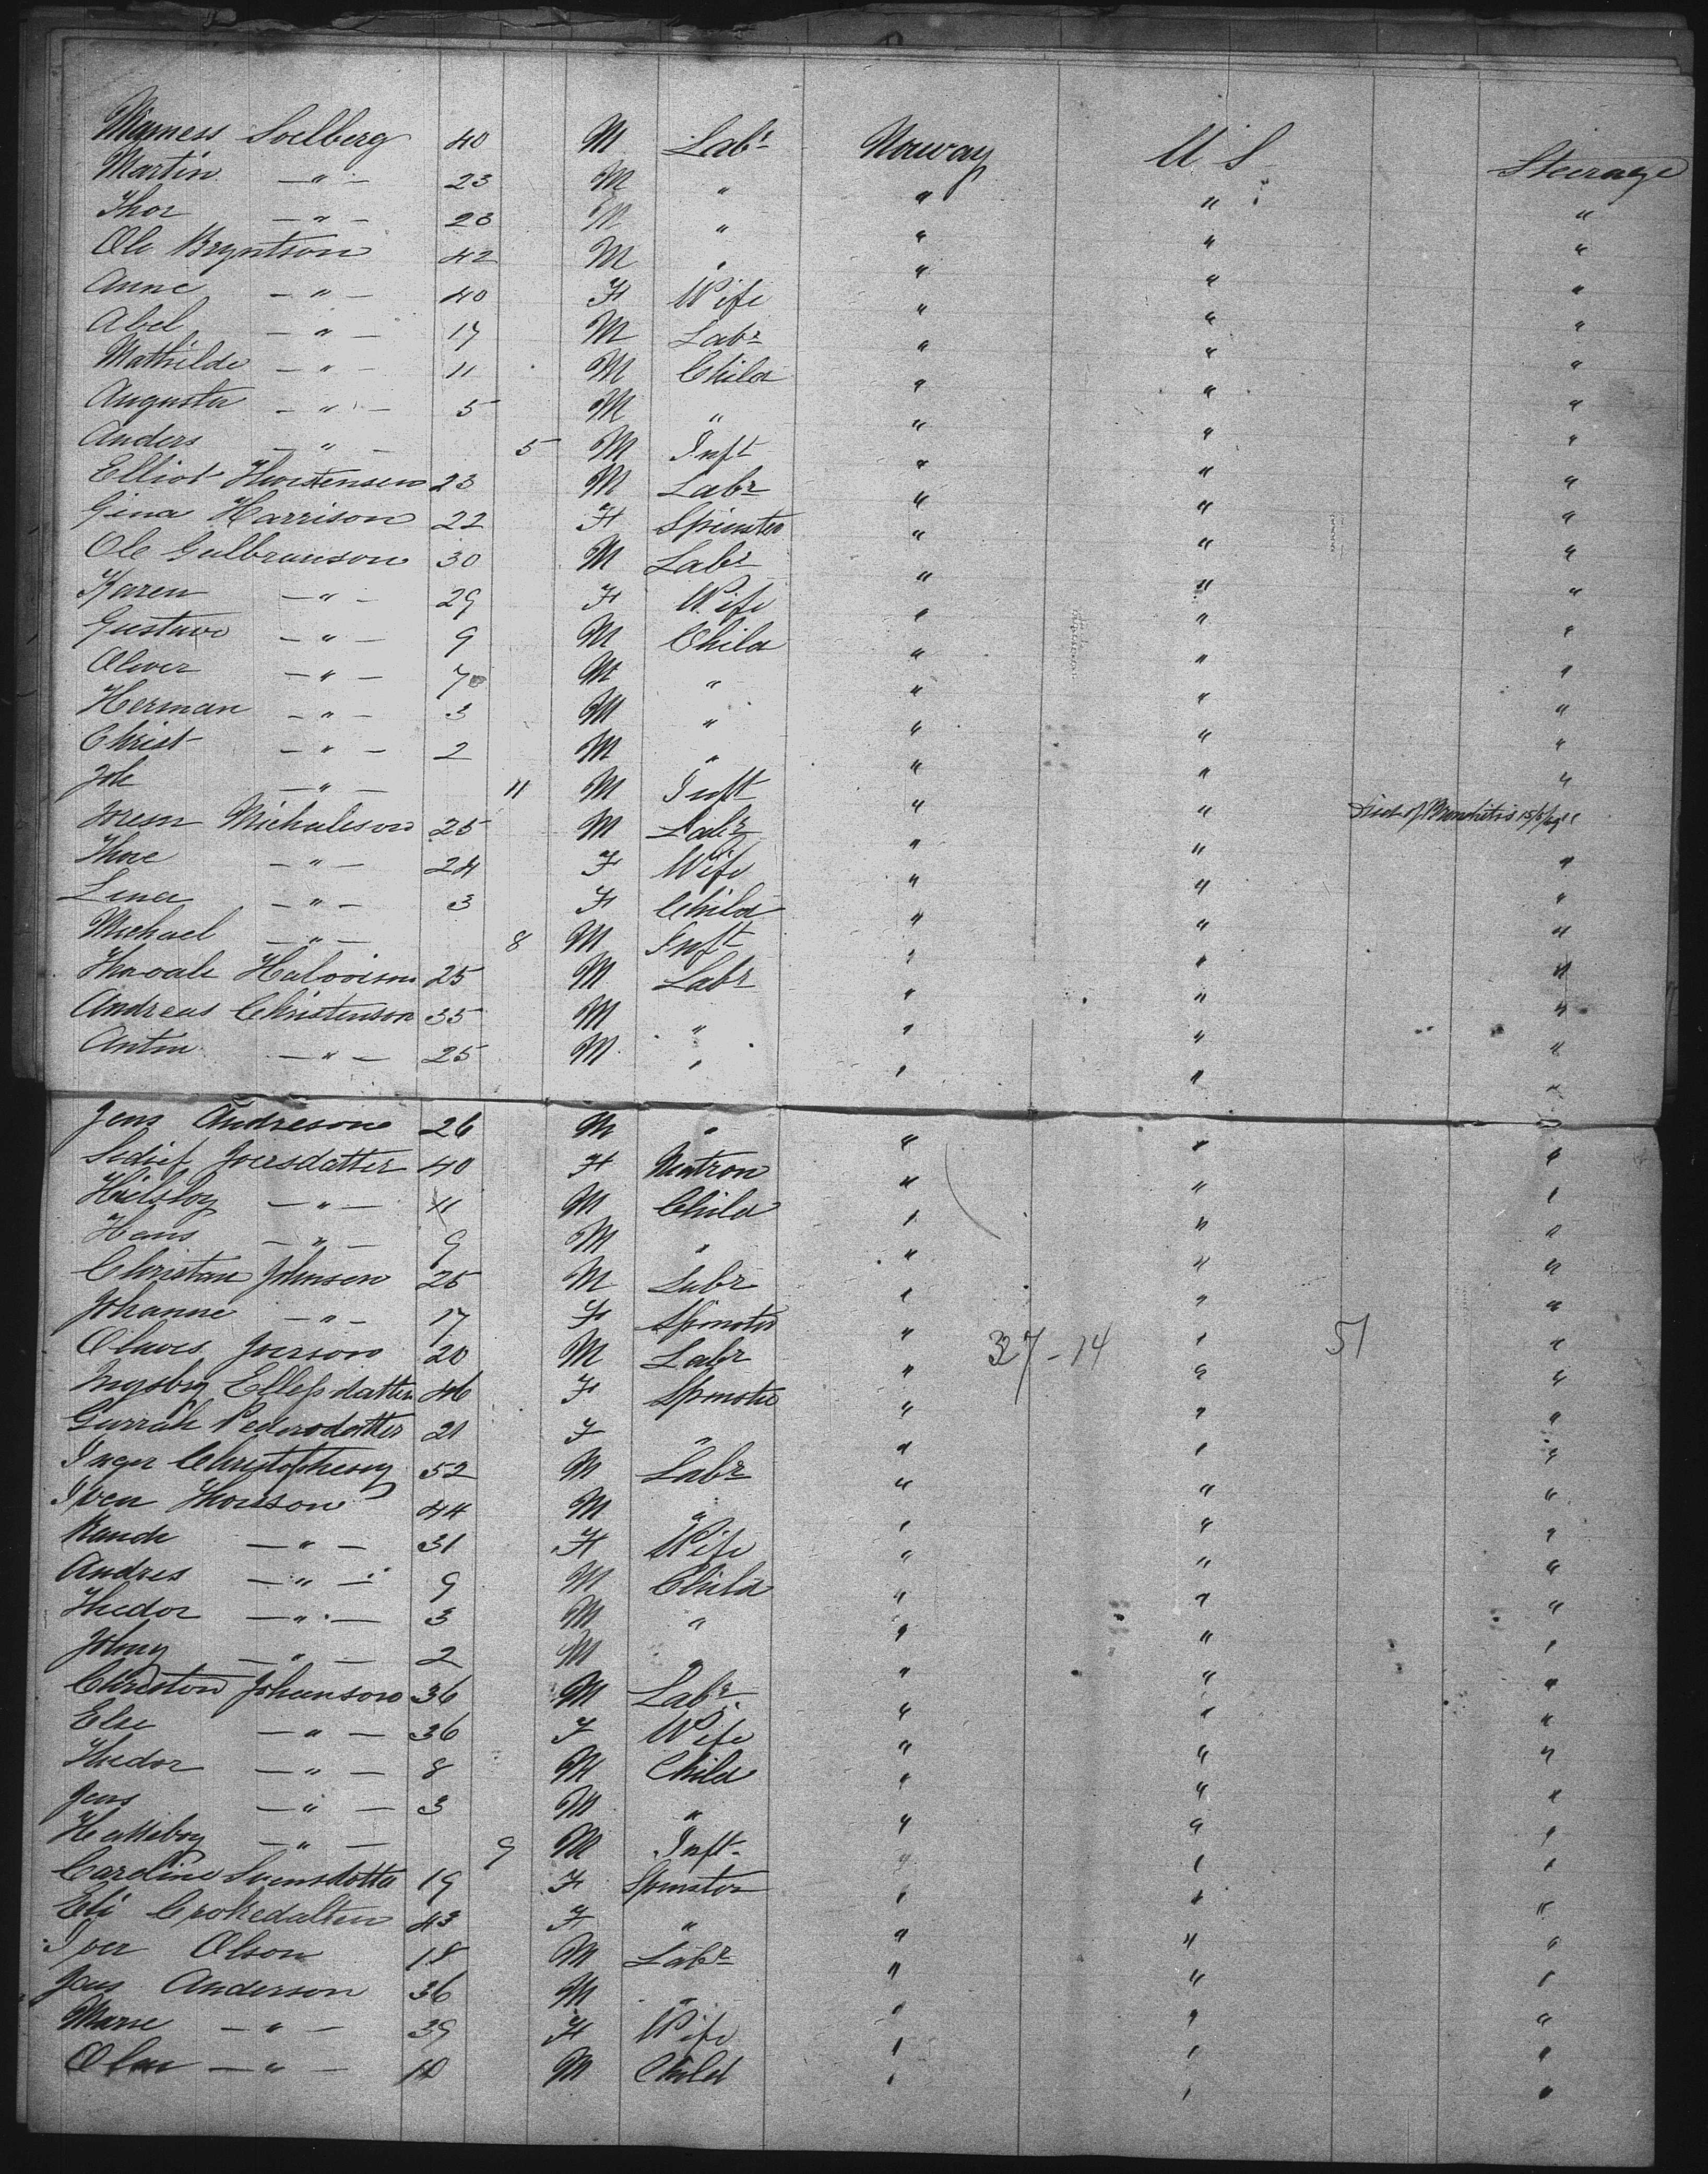 Magness Soelberg 40 M Labr Norway U S Steerage
Martin —"— 23 M " " " "
Thor —"— 23 M " " " "
Ole Bryntson 42 M " " " "
Anne —"— 40 F Wife " " "
Abel —"— 17 M Labr " " "
Mathilde —"— 11 M Child " " "
Augusta —"— 5 M " " " "
Anders —"— 5 M Inft " " "
Elliot Thorstensen 23 M Labr " " "
Gina Harrison 22 F Spinster " " "
Ole Gulbranson 30 M Labr " " "
Karen —"— 29 F Wife " " "
Gustave —"— 9 M Child " " "
Oliver —"— 7 M " " " "
Herman —"— 3 M " " " "
Christ —"— 2 M " " " "
Joh —"— 11 M Inft " " Died of Bronchitis 15/5/ "
Michaleson 25 M Labr " " "
Thore —"— 24 F Wife " " "
Lina —"— 3 F Child " " "
Michael —"— 8 M Inft " " "
Halvorsen 25 M Labr " " "
Andreas Christenson 35 M " " " "
Anton —"— 25 M " " " "
Jens Andresone 26 M " " " "
Joersdatter 40 F Matron " " "
—"— 11 M Child " " "
Hans —"— 9 M " " " "
Christian Johnsen 25 M Labr " " "
Johanne —"— 17 F Spinster " " "
Olaves Joerson 20 M Labr " 37-14 " 51 "
Ellefsdatter 46 F Spinster " " "
Pedersdatter 21 F " " " "
Inger Christophersen 52 M Labr " " "
Iven Thorsson 44 M " " " "
Rande —"— 31 F Wife " " "
Andres —"— 9 M Child " " "
Thedor —"— 3 M " " " "
Johny —"— 2 M " " " "
Christon Johanson 36 M Labr " " "
Else —"— 36 F Wife " " "
Thedor —"— 8 M Child " " "
Jens —"— 3 M " " " "
—"— 9 M Inft " " "
Caroline Svensdotta 19 F Spinster " " "
Eli 43 F " " " "
Iver Olson 18 M Labr " " "
Jens Anderson 36 M " " " "
Marie —"— 39 F Wife " " "
Olav —"— 10 M Child " " "